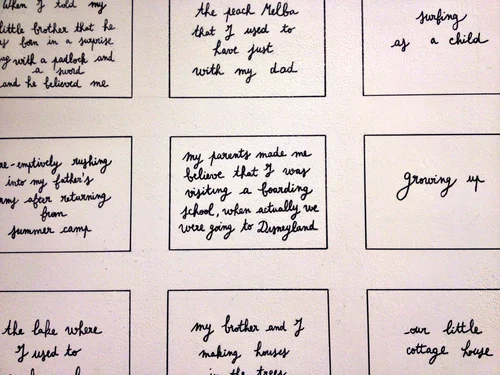 When I told my
little brother that he
born in a surprise
with a padlock and
a sword
and he believed me
the peach Melba
that I used to
have just
with my dad
surfing
as a child
re-emptively rushing
into my father's
arms after returning
from
summer camp
my parents made me
believe that I was
visiting a boarding
school, when actually we
were going to Disneyland
growing up
the lake where
I used to
my brother and I
making houses
in the trees
our little
cottage house